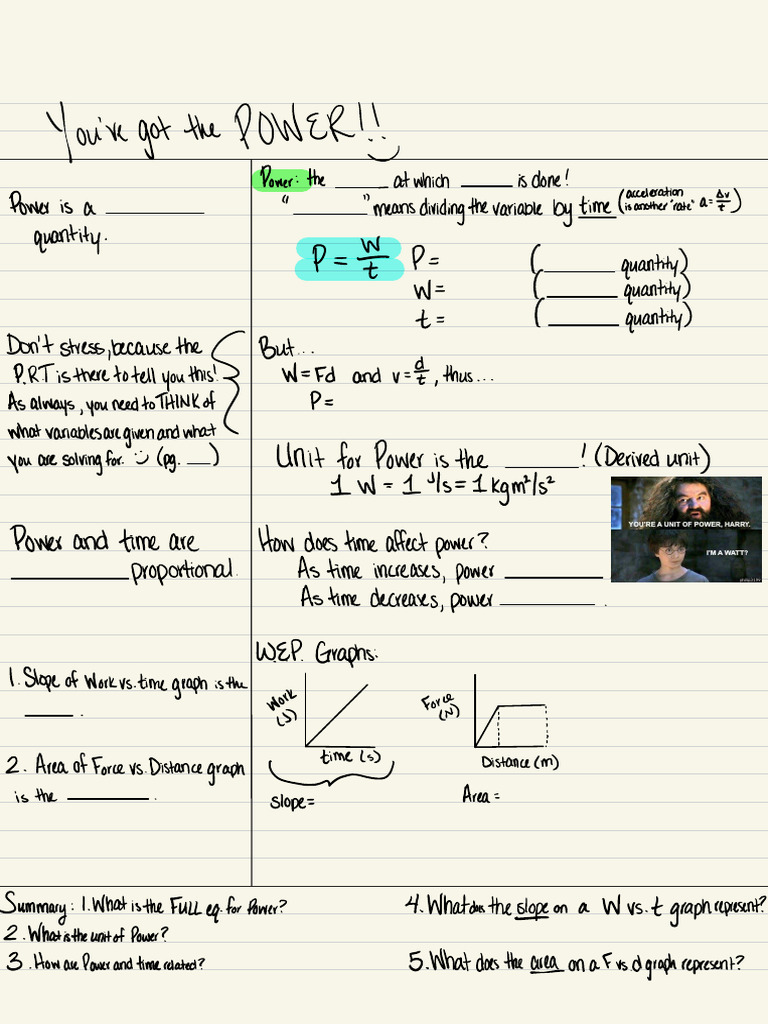 You've got the POWER!!
Power is a ________
quantity.
Power: the ______ at which ______ is done!
"________" means dividing the variable by time (acceleration is another "rate" a = Δv/t)
P = W/t P = (________ quantity)
W = (________ quantity)
t = (________ quantity)
Don't stress, because the
P.RT is there to tell you this!
As always, you need to THINK of
what variables are given and what
you are solving for. :) (pg. ___)
But...
W = Fd and v = d/t, thus...
P =
Unit for Power is the _______! (Derived unit)
1 W = 1 J/s = 1 kgm²/s²
YOU'RE A UNIT OF POWER, HARRY.
I'M A WATT?
Power and time are
____________ proportional.
How does time affect power?
As time increases, power __________
As time decreases, power __________.
W.E.P. Graphs:
1. Slope of Work vs. time graph is the
_____.
2. Area of Force vs. Distance graph
is the ________.
Work (J)
time (s)
slope =
Force (N)
Distance (m)
Area =
Summary: 1. What is the FULL eq. for Power?
2. What is the unit of Power?
3. How are Power and time related?
4. What does the slope on a W vs. t graph represent?
5. What does the area on a F vs d graph represent?